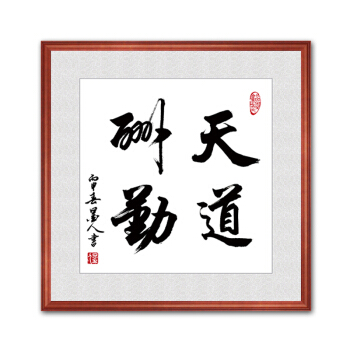 天道
酬勤
丙申春墨人書